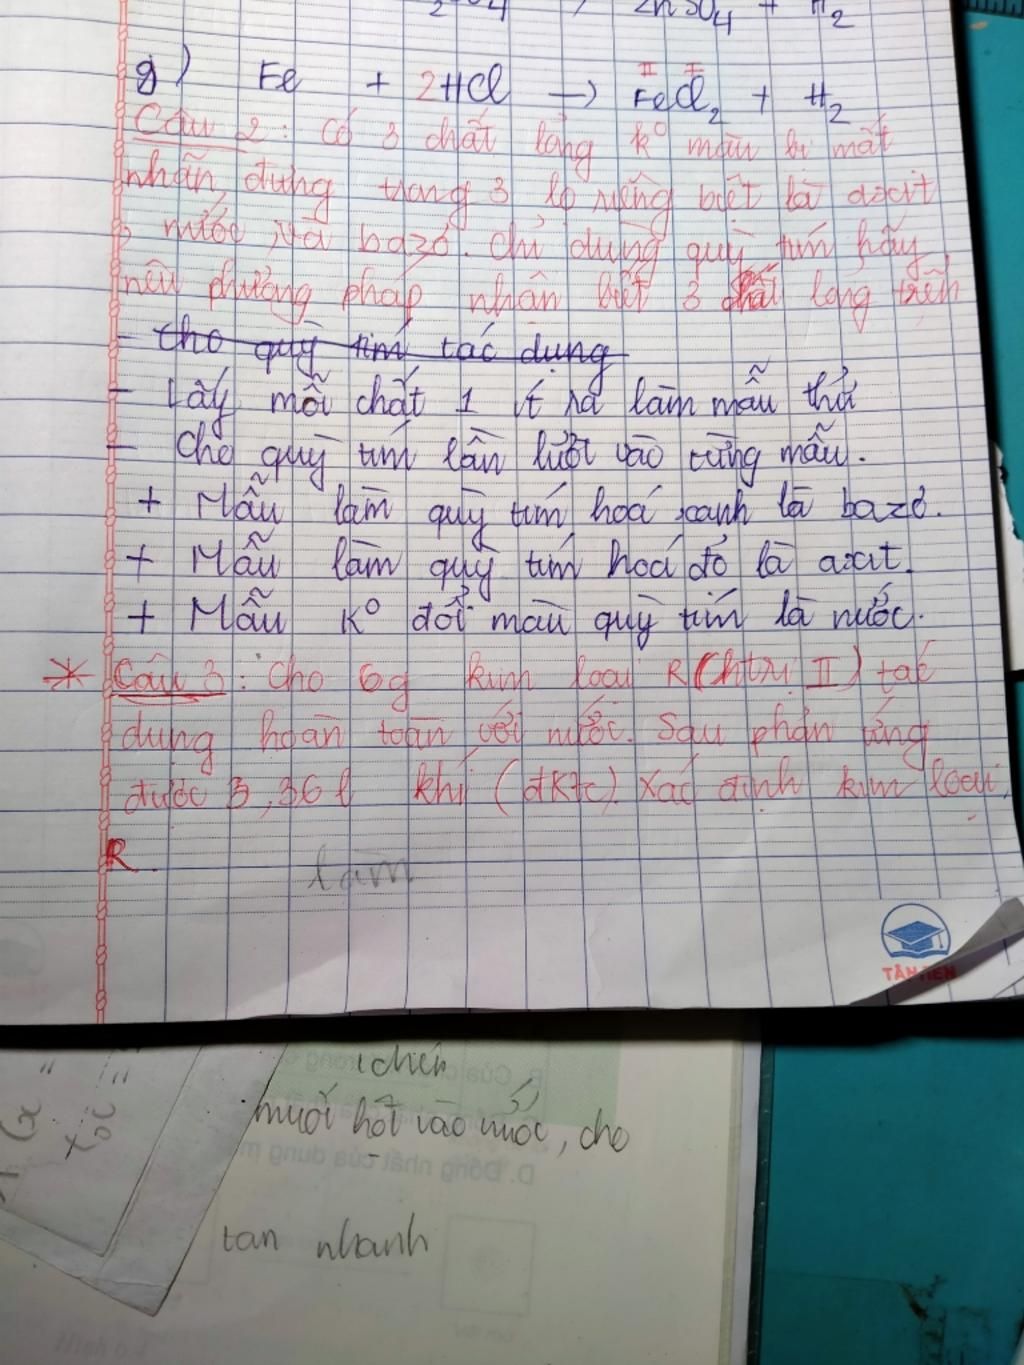 ZnSO4 + H2
g) Fe + 2HCl → FeCl2 + H2
II I
Câu 2: Có 3 chất lỏng k° màu bị mất
nhãn, đựng trong 3 lọ riêng biệt là axit
, nước và bazơ. Chỉ dùng quỳ tím hãy
nêu phương pháp nhận biết 3 chất lỏng trên
- Cho quỳ tím tác dụng
- Lấy mỗi chất 1 ít ra làm mẫu thử
- Cho quỳ tím lần lượt vào từng mẫu.
+ Mẫu làm quỳ tím hoá xanh là bazơ.
+ Mẫu làm quỳ tím hoá đỏ là axit.
+ Mẫu k° đổi màu quỳ tím là nước.
* Câu 3: Cho 6g kim loại R (htrị II) tác
dụng hoàn toàn với nước. Sau phản ứng
được 3,36 l khí (đktc). Xác định kim loại
R.
làm
TÂN TIẾN
muối hột vào nước, cho
tan nhanh